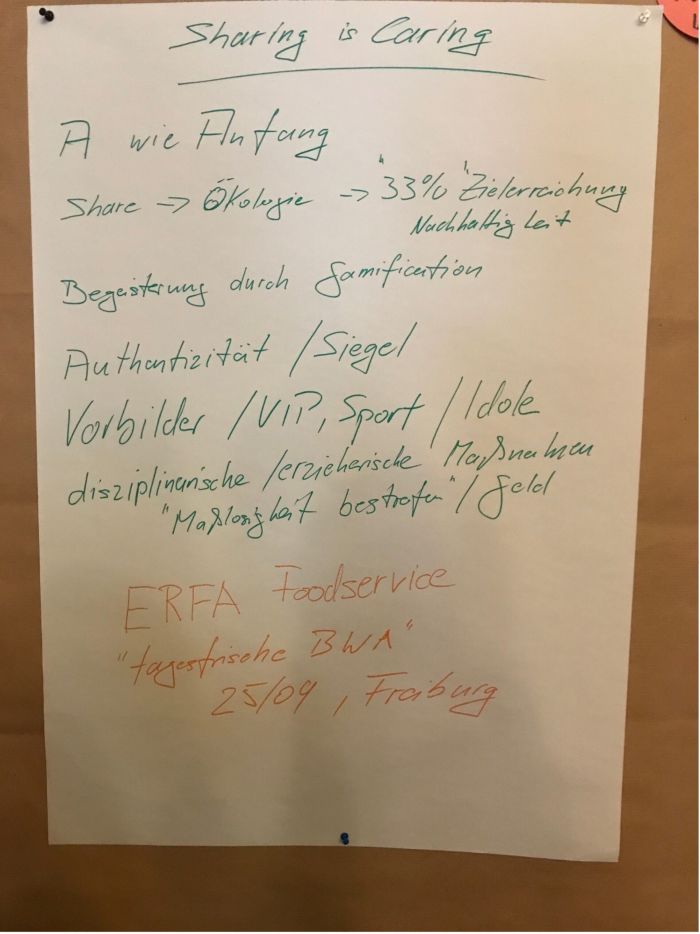 Sharing is Caring
A wie Anfang
Share -> Ökologie -> "33%" Zielerreichung
Nachhaltigkeit
Begeisterung durch Gamification
Authentizität / Siegel
Vorbilder / VIP, Sport / Idole
disziplinarische / erzieherische Maßnahmen
"Maßlosigkeit bestrafen" / Geld
ERFA Foodservice
"tagesfrische BWA"
25/09, Freiburg